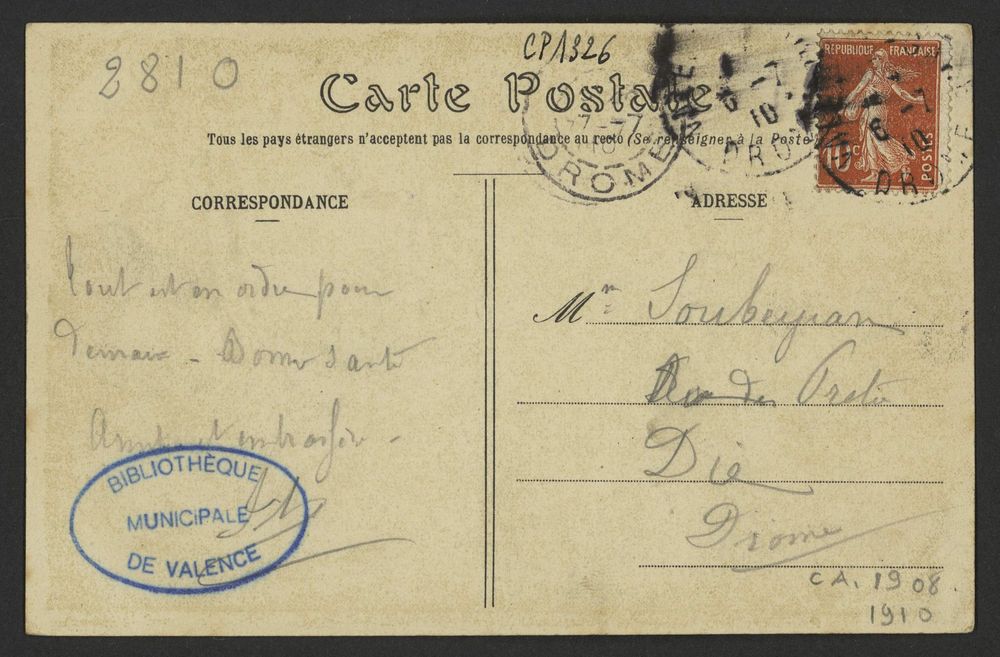 2810
CP1326
Carte Postale
Tous les pays étrangers n'acceptent pas la correspondance au recto (Se renseigner à la Poste)
RÉPUBLIQUE FRANÇAISE
10 c
POSTES
17-7
10
DROME
6-7
10
DRO
6-7
10
DRO
CORRESPONDANCE
ADRESSE
Tout est en ordre pour
demain - Bonne santé
Amitiés et
BIBLIOTHÈQUE
MUNICIPALE
DE VALENCE
M
Soubeyran
des
Die
Drome
CA. 1908
1910